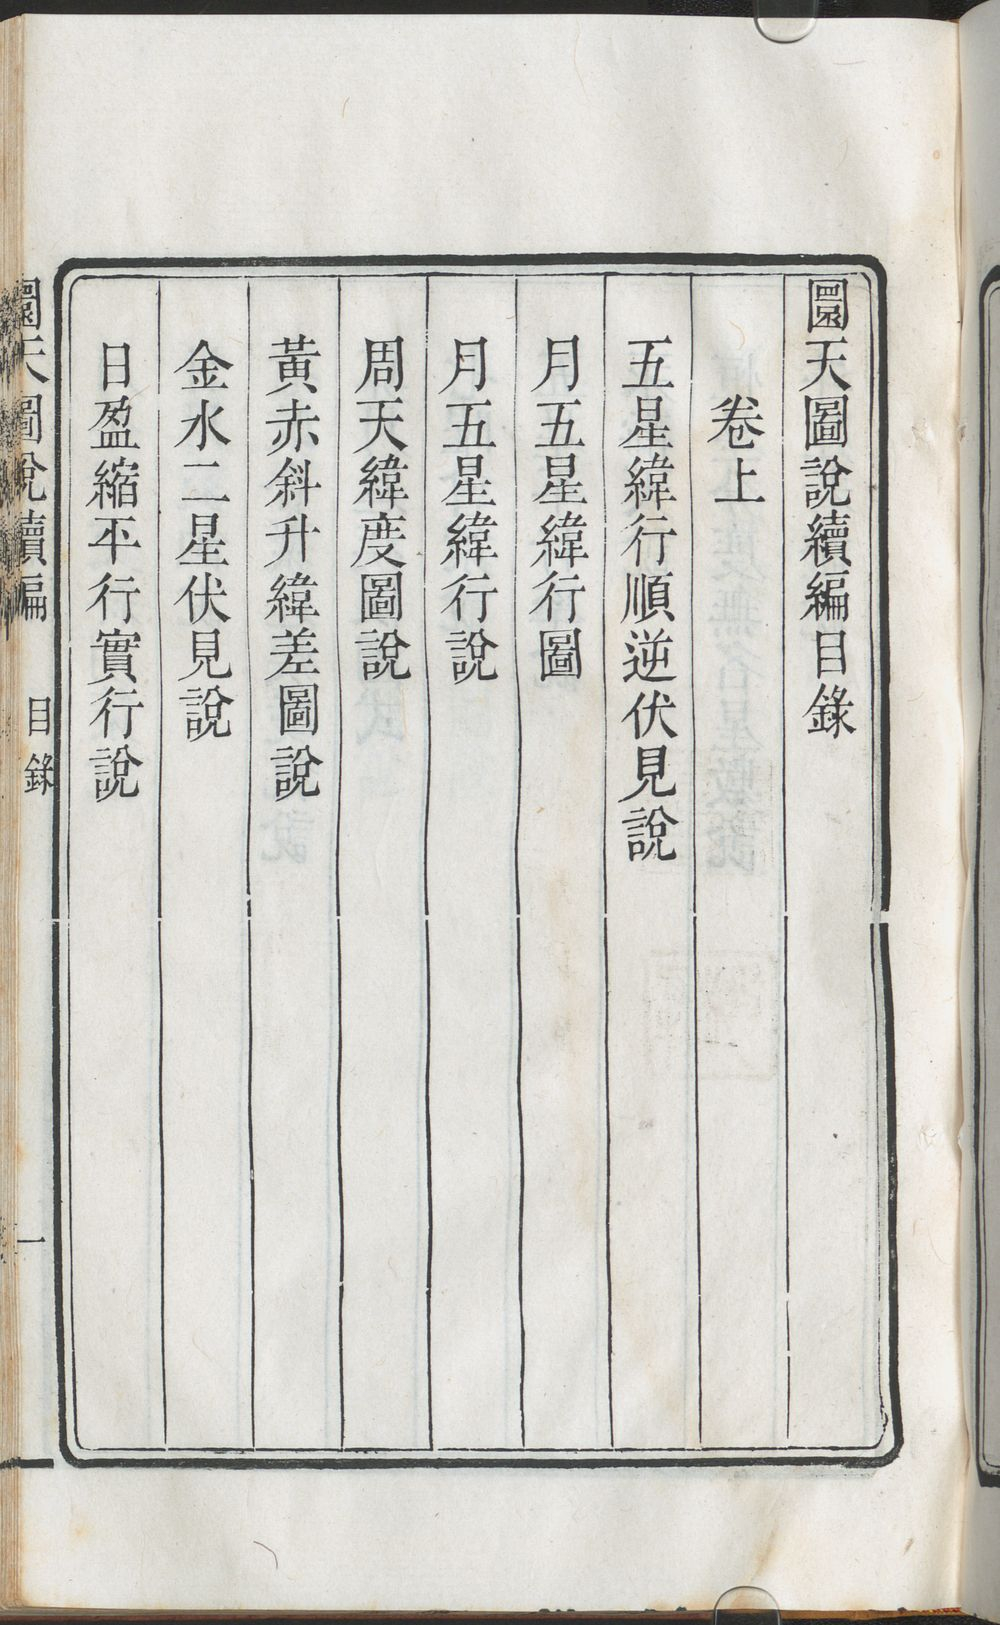 圜天圖說續編目錄
卷上
五星緯行順逆伏見說
月五星緯行圖
月五星緯行說
周天緯度圖說
黃赤斜升緯差圖說
金水二星伏見說
日盈縮平行實行說
圜天圖說續編 目錄 一